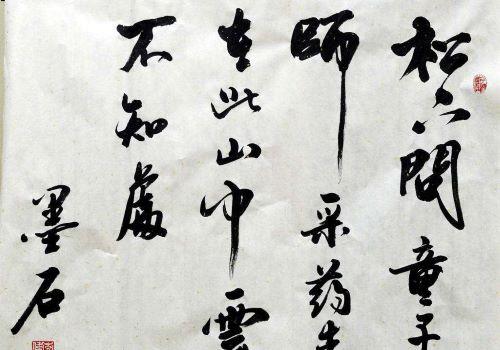 松下問童子
師采药去
在此山中雲
不知處
墨石